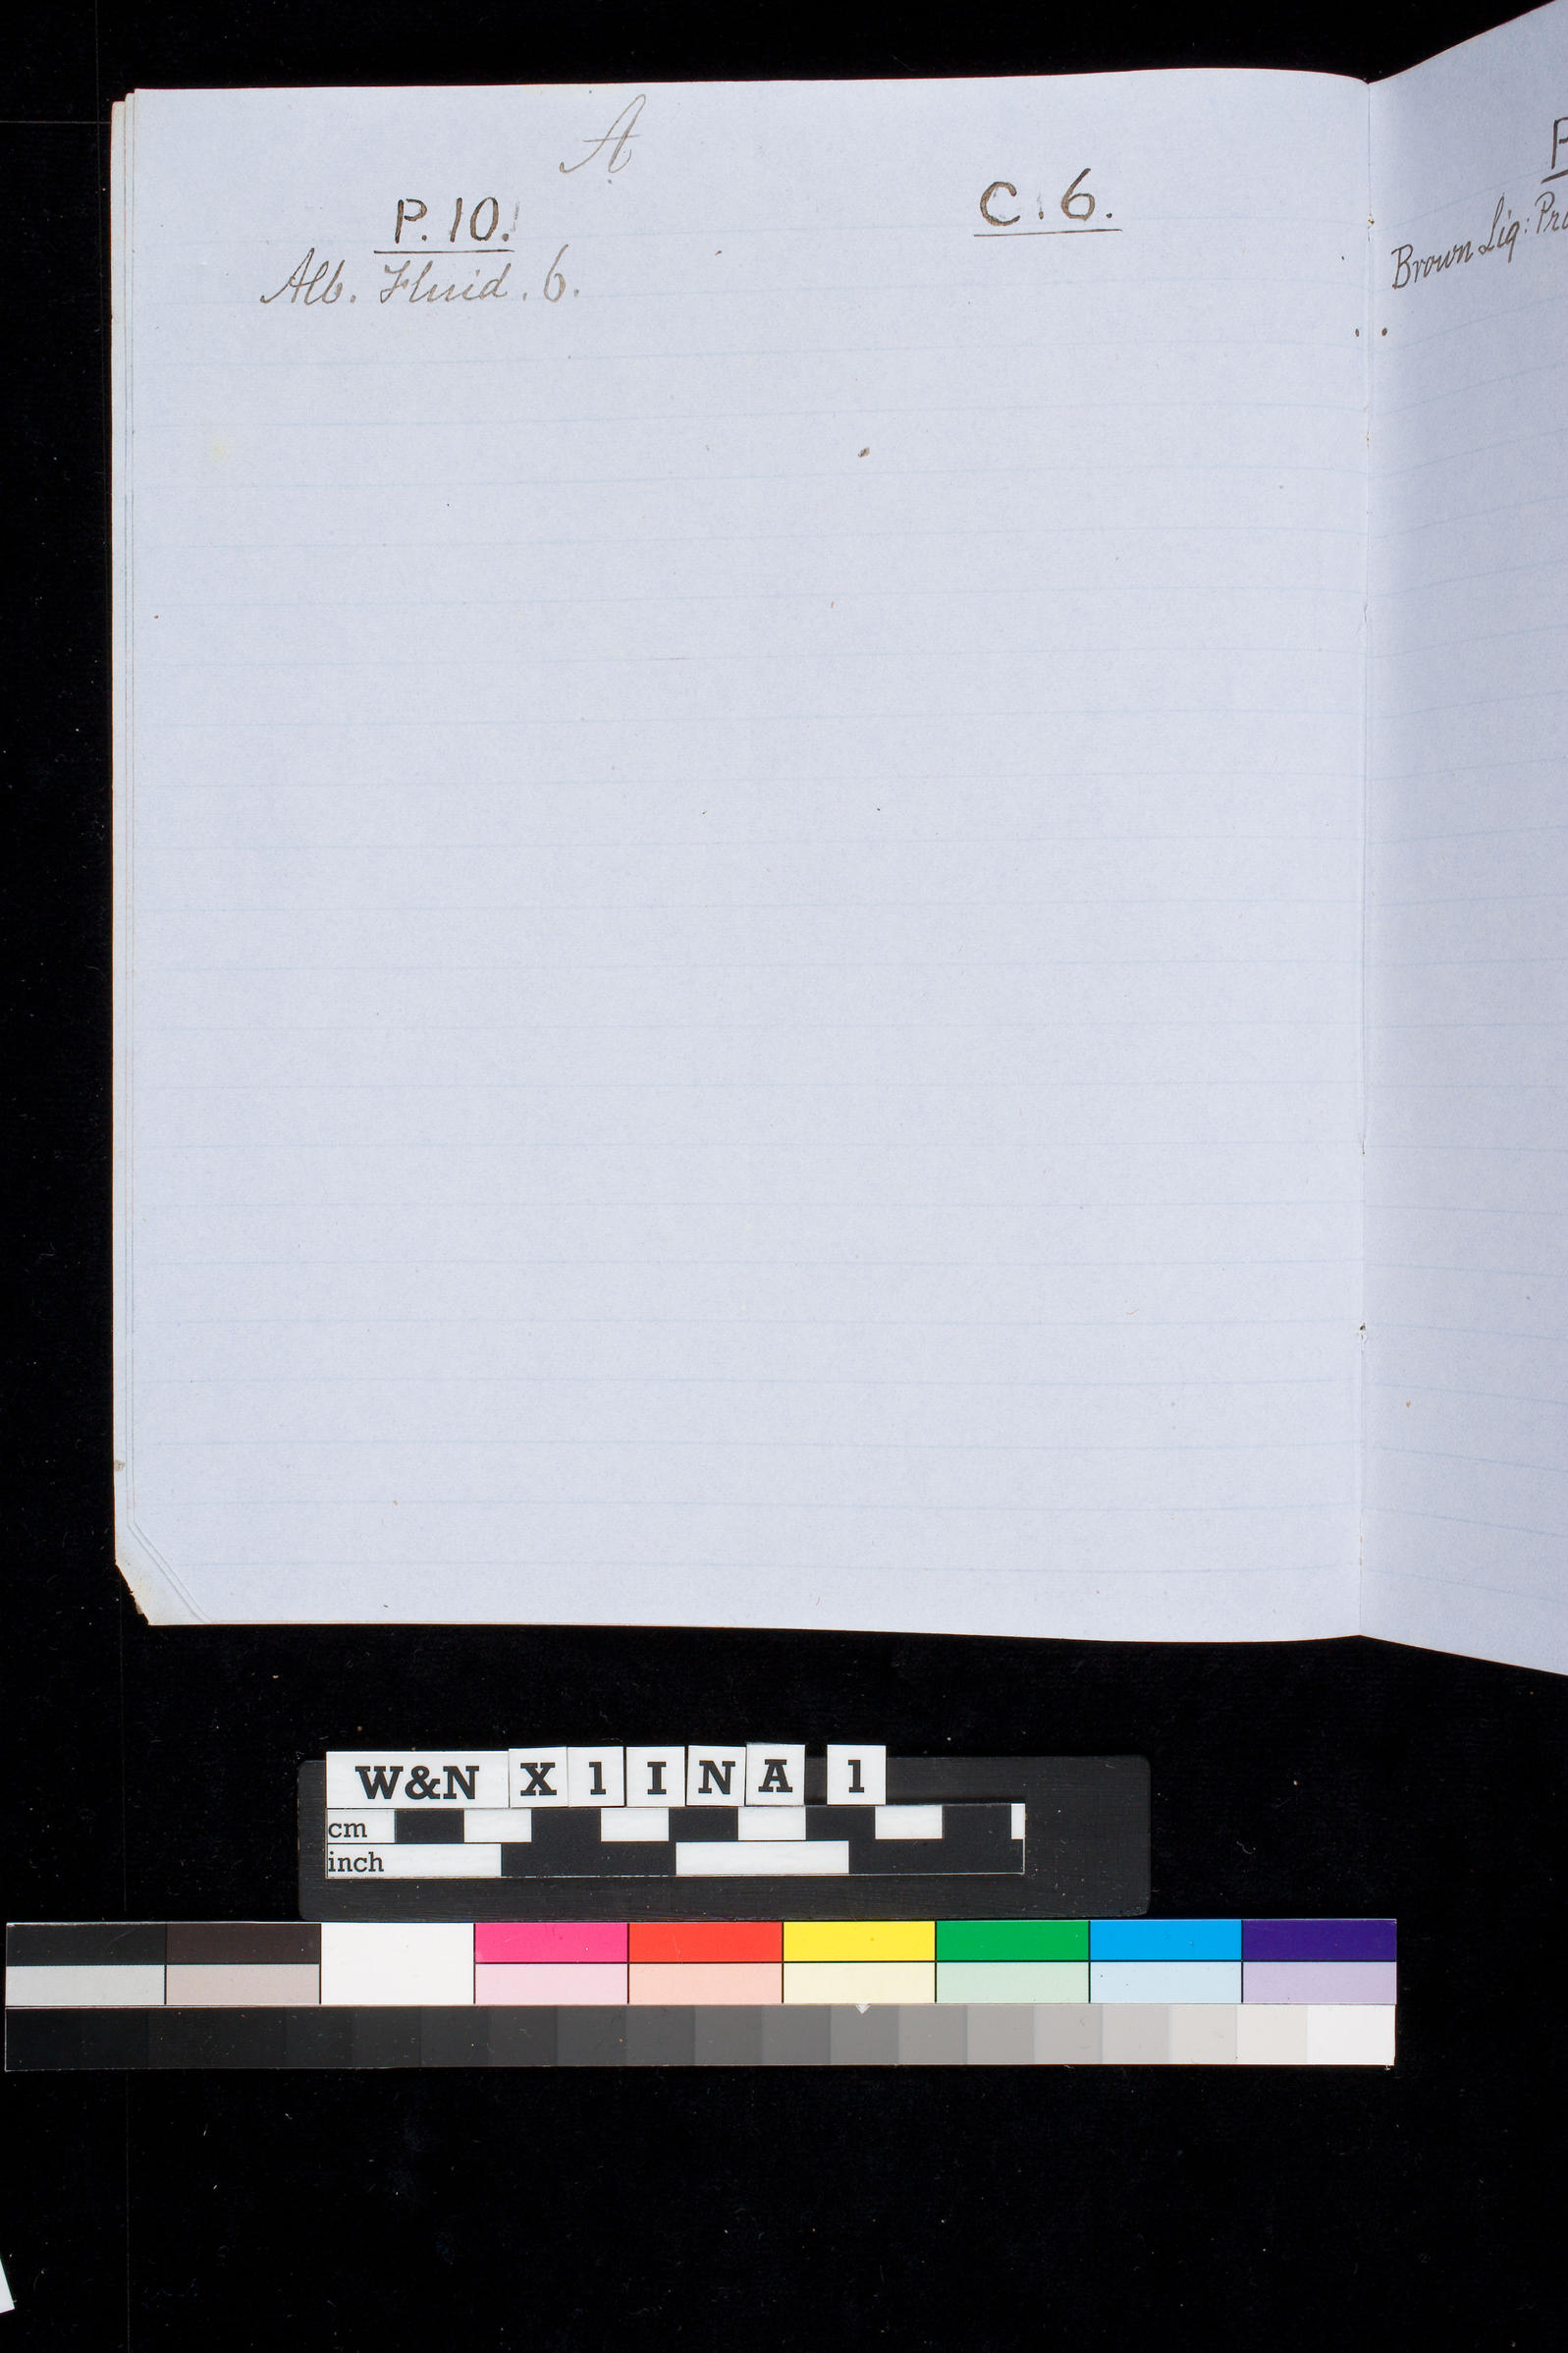 A
P. 10.
C. 6.
Alb. Fluid. 6.
Brown Liq:
W&N X 1 I N A 1
cm
inch